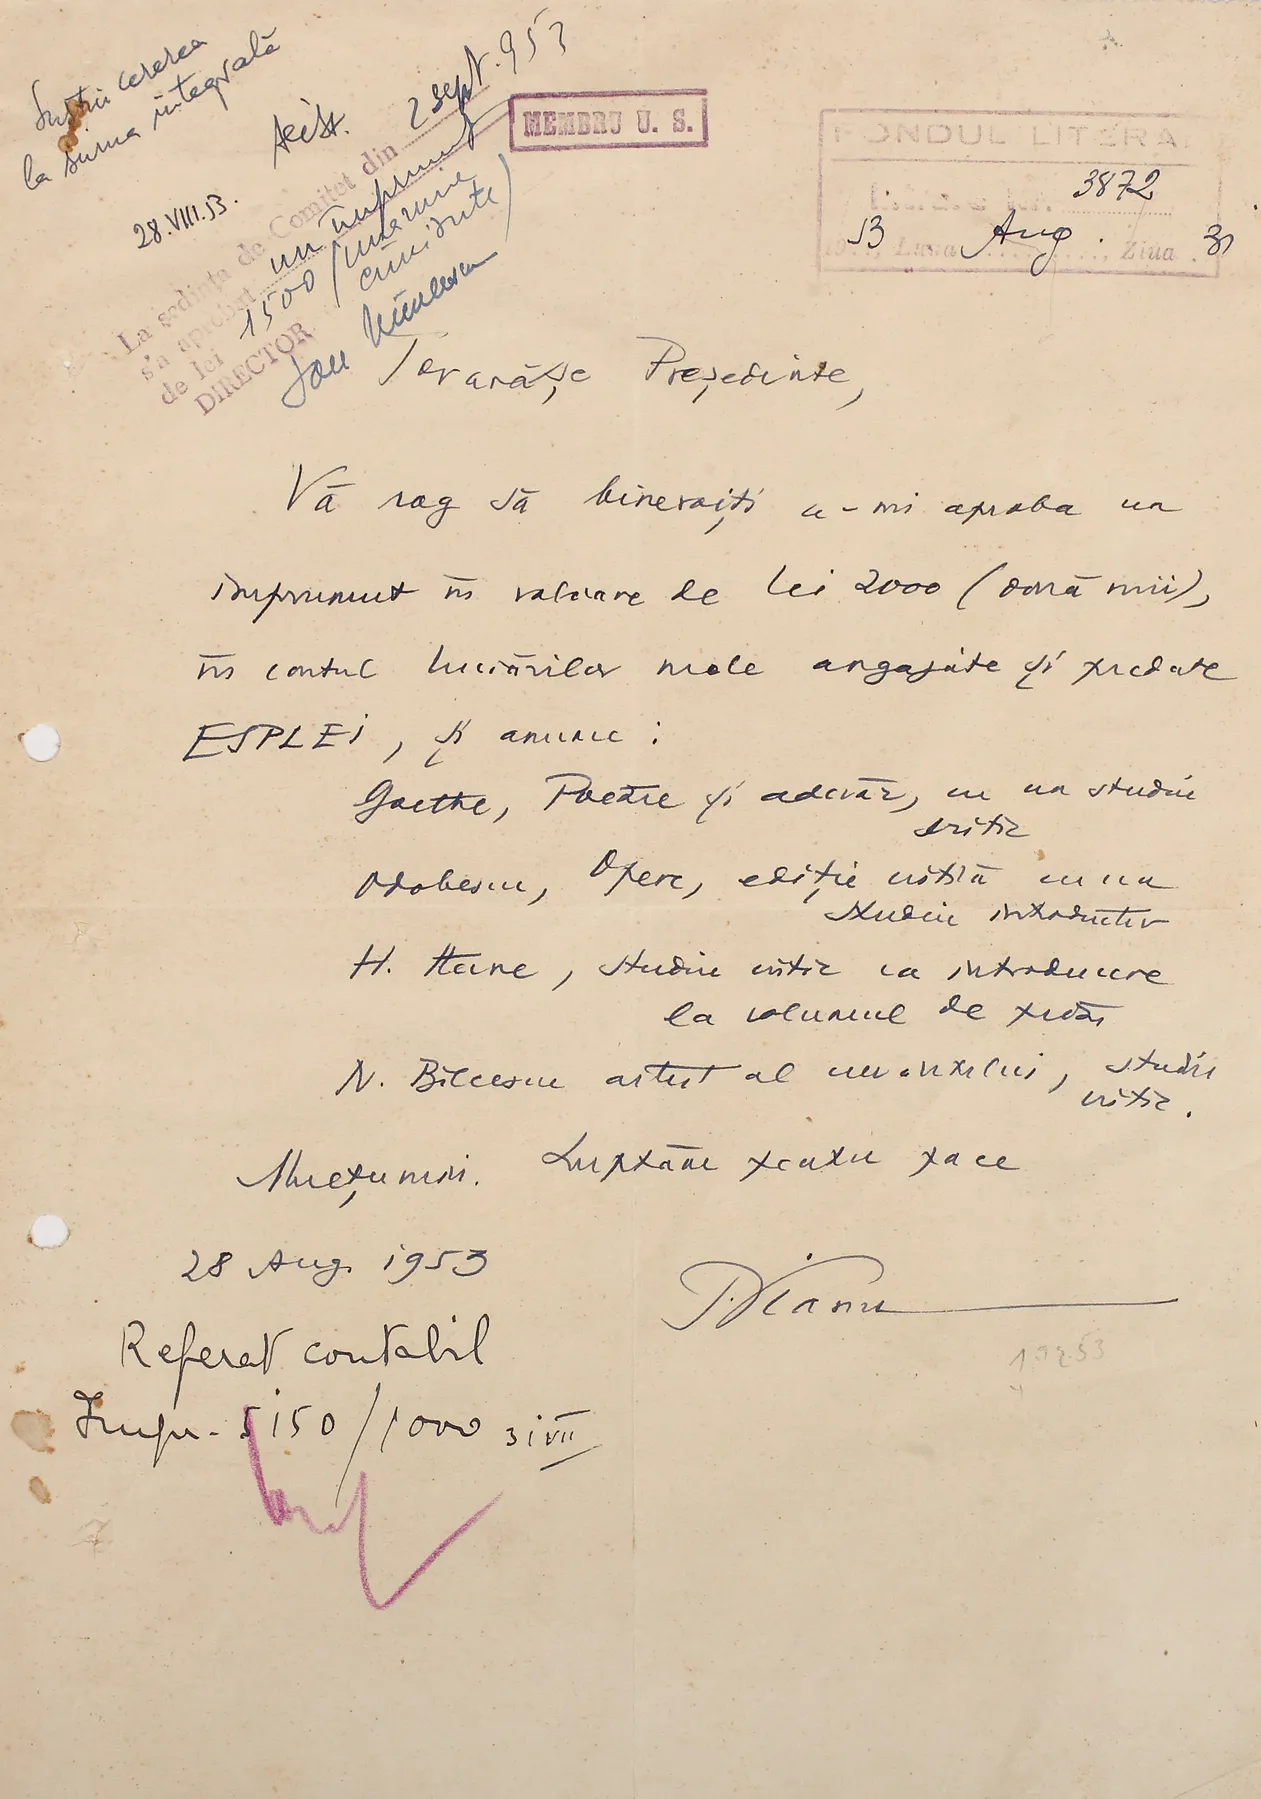 Susțin cererea
la suma integrală
28.VIII.53.
Asist.
MEMBRU U. S.
FONDUL LITERA
3872
53, Luna Aug. Ziua 31
La ședința de Comitet din 2 sept. 953
s'a aprobat un împrumut
de lei 1500 (unamie
cincisute)
DIRECTOR,
Tovarășe Președinte,
Vă rog să binevoiți a-mi aproba un
împrumut în valoare de lei 2000 (două mii),
în contul lucrărilor mele angajate și predate
ESPLEI, și anume:
Goethe, Poezie și adevăr, cu un studiu
critic
Odobescu, Opere, ediție critică cu un
studiu introductiv
H. Heine, studiu critic ca introducere
la volumul de proză
N. Bălcescu artist al cuvântului, studiu
critic.
Mulțumiri. Luptăm pentru pace
28 Aug. 1953
T. Vianu
Referat contabil
Impr. 5150/1000 31 VII